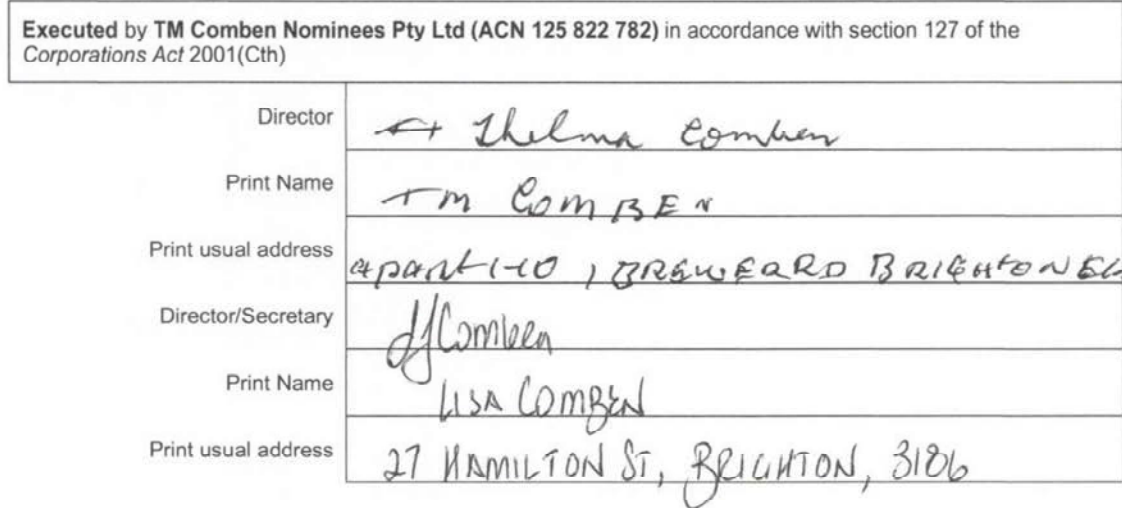 Executed by TM Comben Nominees Pty Ltd (ACN 125 822 782) in accordance with section 127 of the
Corporations Act 2001(Cth)
Director
Thelma Comben
Print Name
TM COMBEN
Print usual address
BRIGHTON
Director/Secretary
Comben
Print Name
LISA COMBEN
Print usual address
27 HAMILTON ST, BRIGHTON, 3186